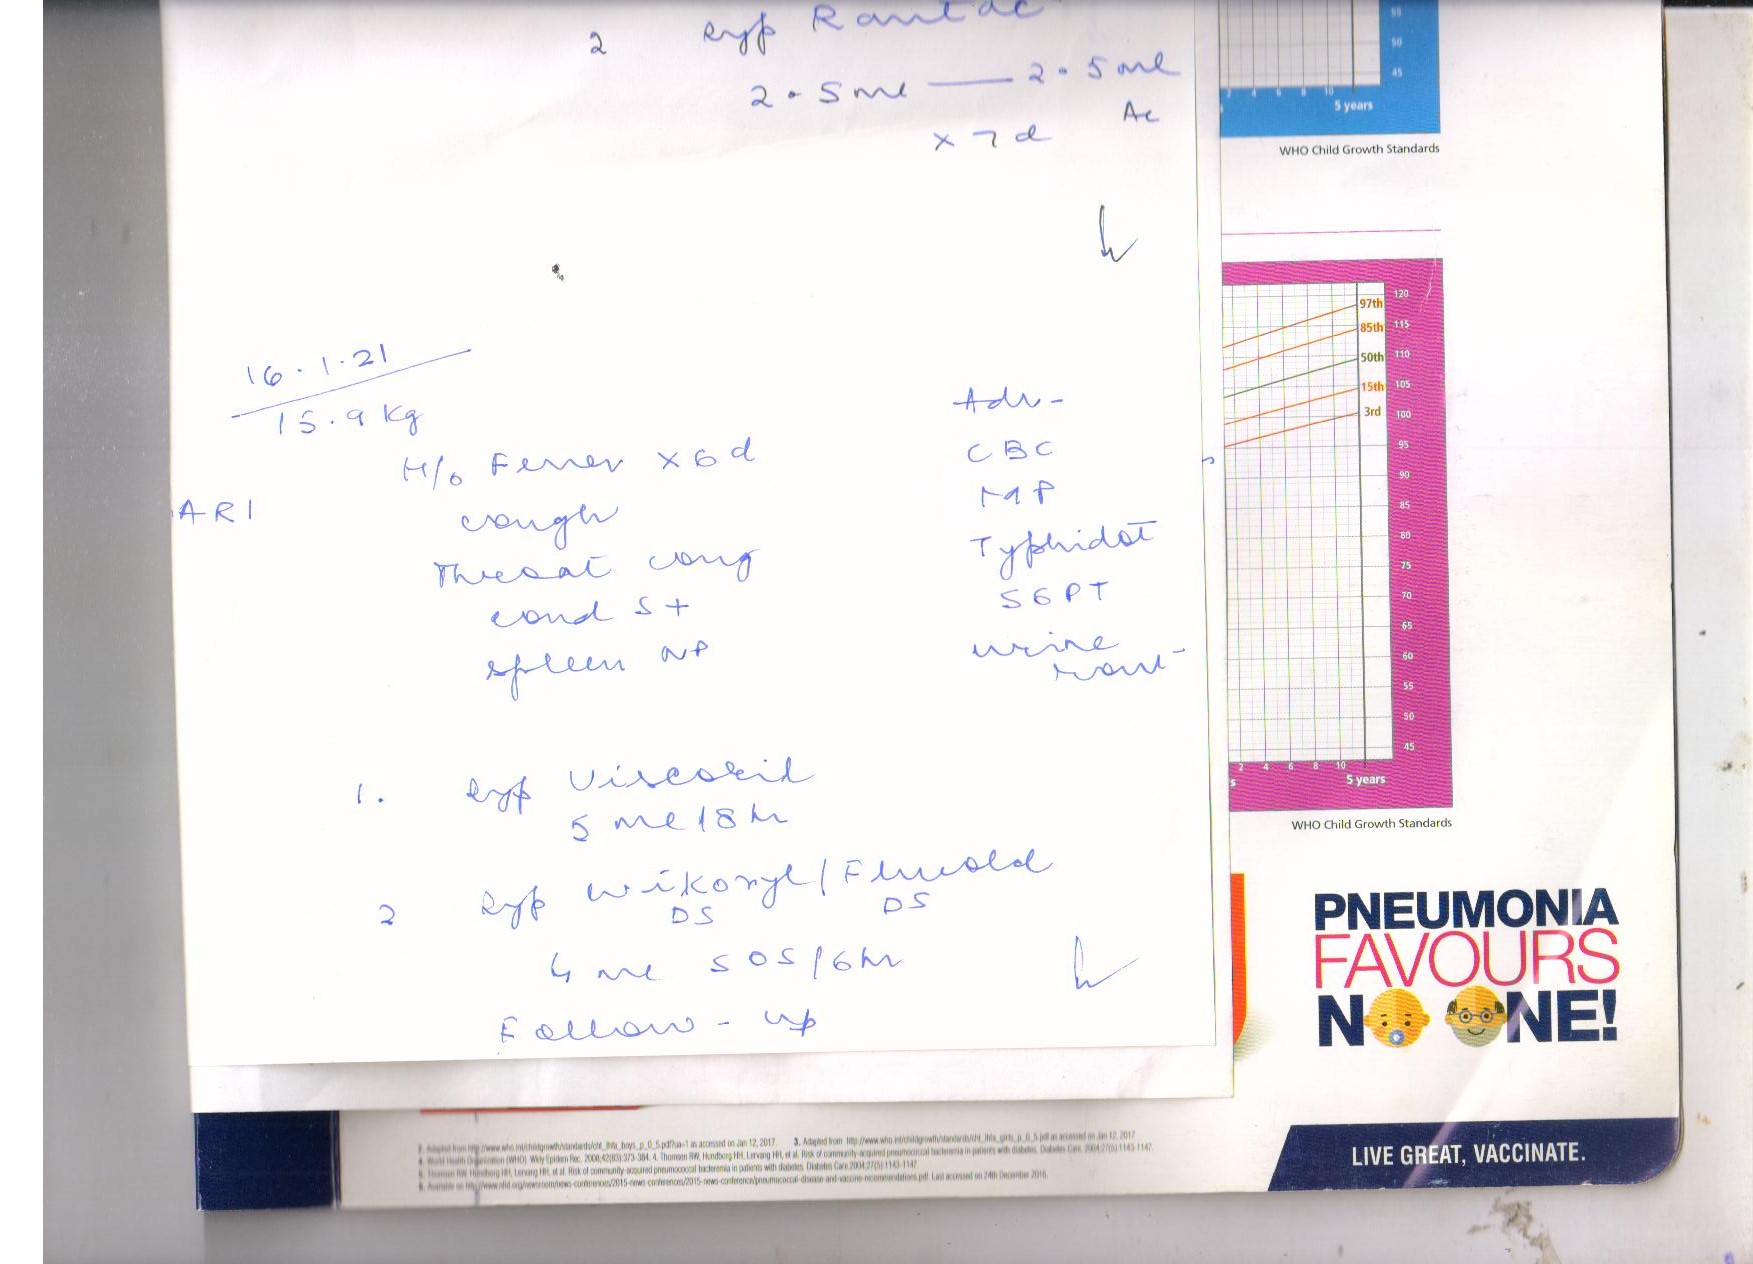 2 syp Rantac
2.5 ml — 2.5 ml
Ac
x 7 d
16.1.21
15.9 kg
H/o Fever x 6 d
ARI
cough
Throat cong
cond S+
spleen NP
Adv-
CBC
MP
Typhidot
SGPT
urine
rout-
1. syp Viscorid
5 ml / 8 hr
2 syp Wikoryl / Flucold
DS DS
4 ml SOS / 6 hr
Follow-up
55
50
45
2 4 6 8 10
5 years
WHO Child Growth Standards
97th 120
85th 115
50th 110
15th 105
3rd 100
95
90
85
80
75
70
65
60
55
50
45
2 4 6 8 10
5 years
WHO Child Growth Standards
PNEUMONIA
FAVOURS
NO ONE!
LIVE GREAT, VACCINATE.